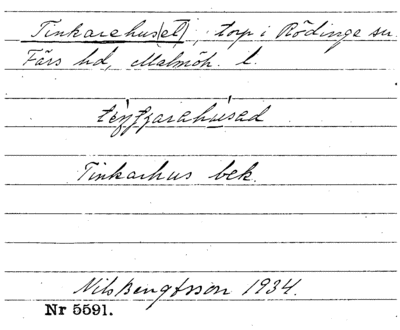 Tinkarehus(et), torp i Rödinge sn.
Färs hd, Malmöh. l.
Tinkarhus bek.
Nils Bengtsson 1934.
Nr 5591.